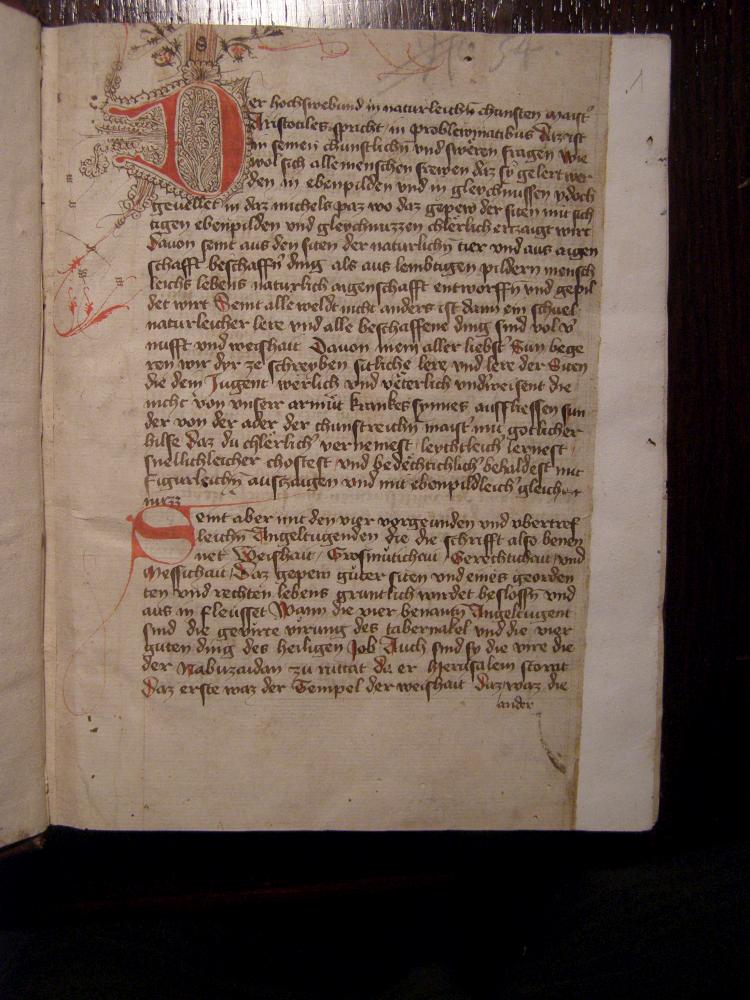 54
1
Der hochswebund in naturleichn chunsten maist
Aristotiles spricht in problewmatibus daz ist
in seinen chunstlichn und sweren fragen Wie
wol sich alle menschen frewen daz sy gelert wer
den in ebenpilden und in gleychnussen ydoch
gevellet in daz michels paz wo daz gepew der siten mit sich
tigen ebenpilden und gleychnuzzen chlerlich ertzaigt wirt
Davon seint aus den siten der naturlichn tier und aus aigen
schafft beschaffn ding als aus lembtigen pildern mensch
leichs lebens naturlich aigenschafft entworffn und gepil
det wirt Seint alle weldt nicht anders ist dann ein schuel
naturleicher lere und alle beschaffene ding sind vol v
nufft und weishait Davon mein aller liebst Sun bege
ren wir dyr ze schreyben sitliche lere und lere der Siten
die dem Jugent werlich und veterlich underweisent die
nicht von unserr armut krankes synnes ausfliessen sun
der von der ader der chunstreichn maist mit gotlicher
hilfe Daz du chlerlich vernemest leychtleich lernest
snellichleicher chostest und bedechtichlich behaldest mit
figurleichn auszaigen und mit ebenpildleich gleichn
nuzz
Seint aber mit den vier vorgeunden und ubertref
leichn Angeltugenden die die schrifft also benen
net Weishait / Grosmutichait / Gerechtichait und
Messichait / Daz gepew guter siten und eines georden
ten und rechten lebens gruntlich wirdet beslossn und
aus in fleusset Wann die vier benantn Angeltugent
sind die gevirte virung des tabernakel und die vier
guten ding des heiligen Job Auch sind sy die vire die
der Nabuzardan zu ruttat da er Jherusalem storrat
Daz erste waz der Tempel der weishait Daz waz die
ander